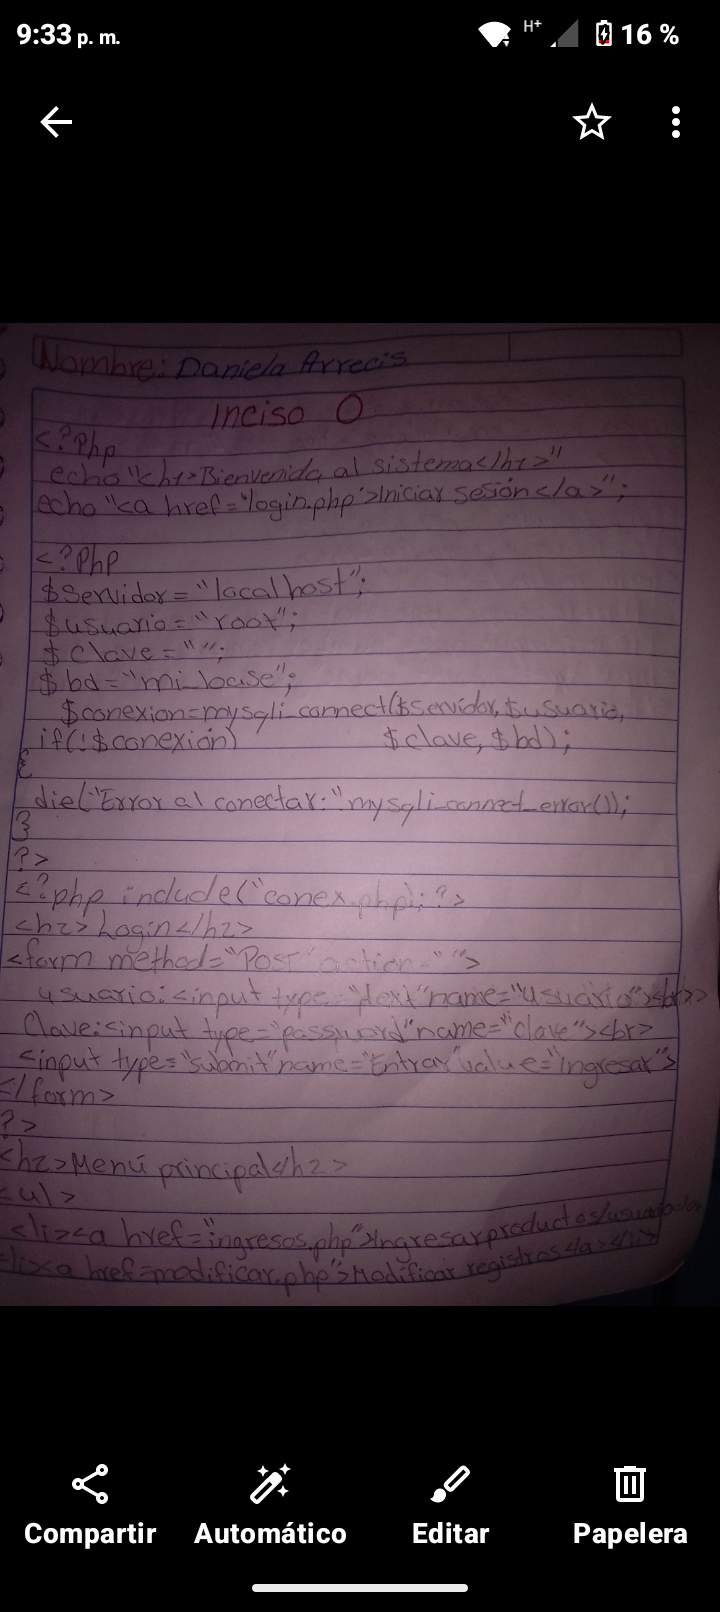 9:33 p. m.
H+
16 %
Nombre: Daniela Arrecis
Inciso O
<?Php
echo "<h1>Bienvenida al sistema</h1>"
echo "<a href='login.php'>Iniciar sesión</a>";
<?Php
$servidor = "localhost";
$usuario = "root";
$clave = "";
$bd = "mi_base";
$conexion=mysqli_connect($servidor, $usuario,
if(!$conexión) $clave, $bd);
{
die("Error al conectar:" mysqli_connect_error());
}
?>
<?php include("conex.php); ?>
<h2>Login</h2>
<form method="Post" action="">
usuario:<input type="text" name="usuario"><br>>
Clave:<input type="password" name="clave"><br>
<input type="submit" name="Entrar" value="Ingresar">
</form>
?>
<h2>Menú principal</h2>
<ul>
<li><a href="ingresos.php">Ingresar productos/usuario</a>
<li><a href=modificar.php">Modificar registros</a></li>
Compartir
Automático
Editar
Papelera